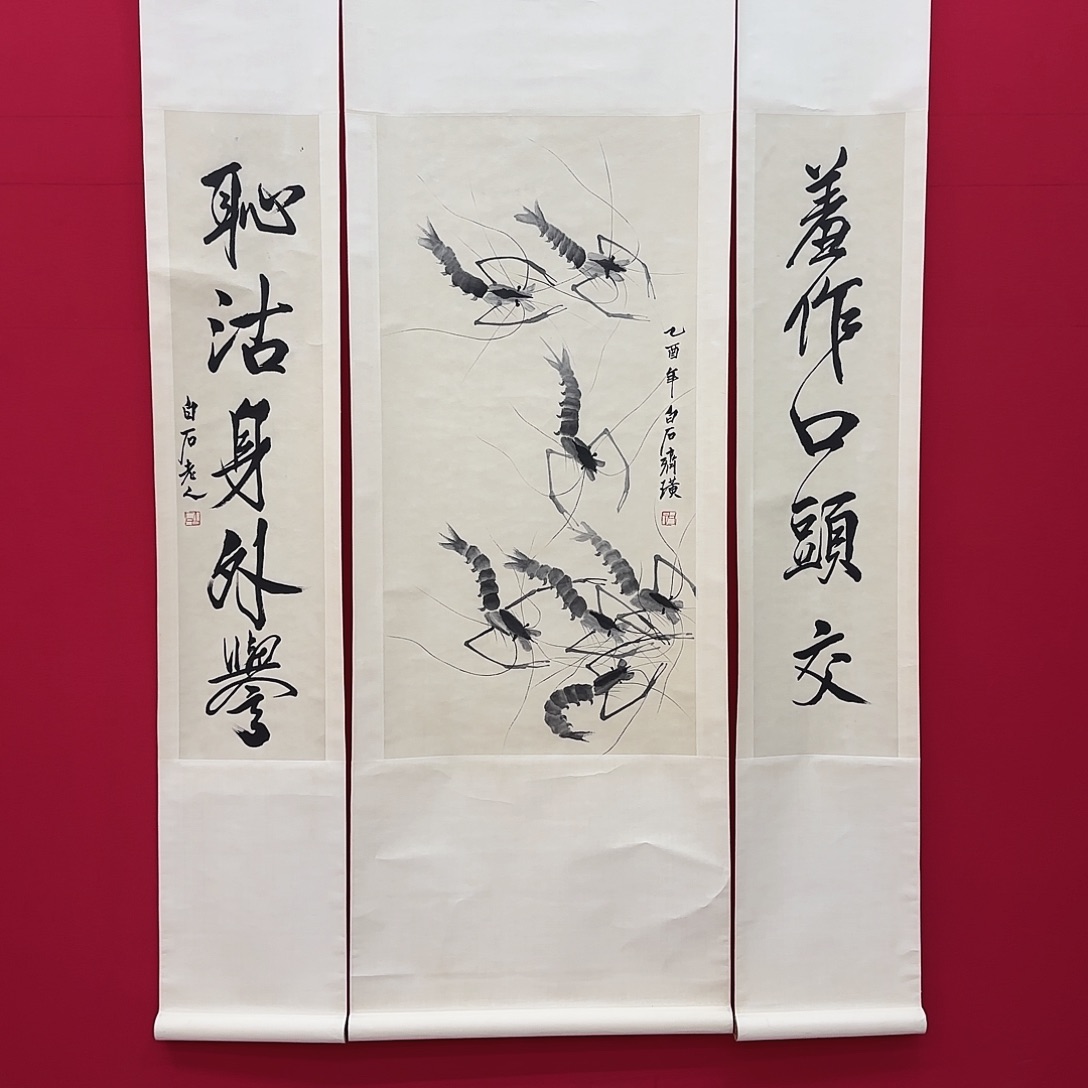 羞作口頭交
乙酉年白石齊璜
恥沽身外譽
白石老人